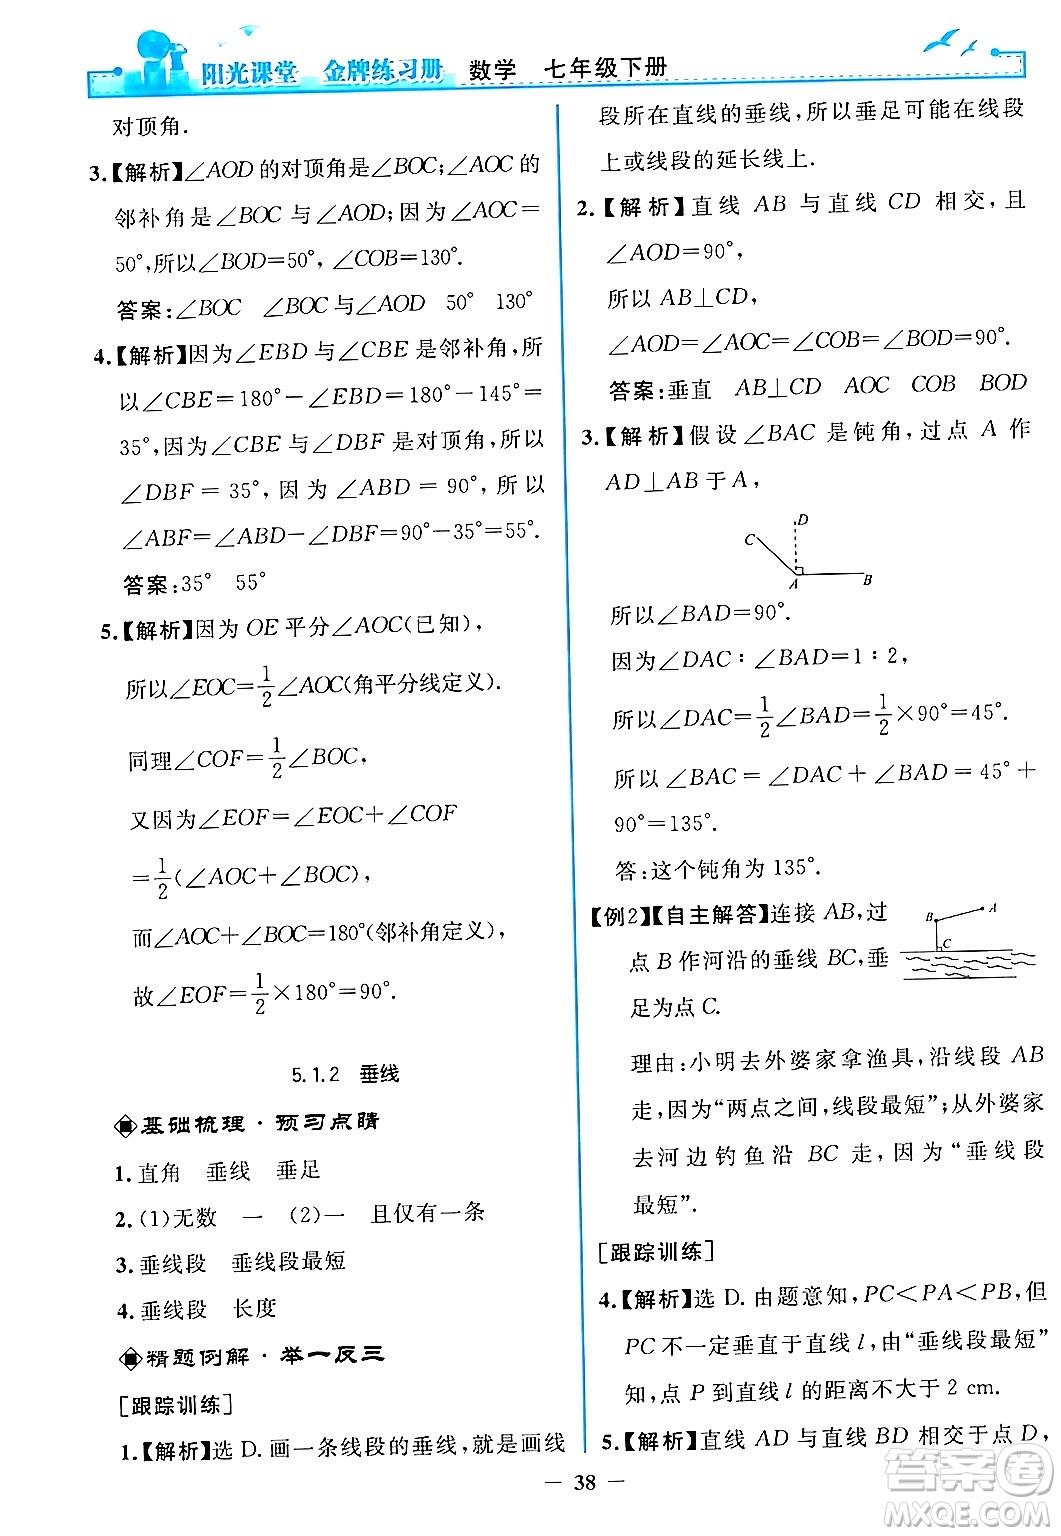 阳光课堂 金牌练习册 数学 七年级下册
对顶角.
3.【解析】∠AOD的对顶角是∠BOC;∠AOC的
邻补角是∠BOC与∠AOD;因为∠AOC=
50°,所以∠BOD=50°,∠COB=130°.
答案:∠BOC ∠BOC与∠AOD 50° 130°
4.【解析】因为∠EBD与∠CBE是邻补角,所
以∠CBE=180°-∠EBD=180°-145°=
35°,因为∠CBE与∠DBF是对顶角,所以
∠DBF=35°,因为∠ABD=90°,所以
∠ABF=∠ABD-∠DBF=90°-35°=55°.
答案:35° 55°
5.【解析】因为OE平分∠AOC(已知),
所以∠EOC=1/2∠AOC(角平分线定义).
同理∠COF=1/2∠BOC,
又因为∠EOF=∠EOC+∠COF
=1/2(∠AOC+∠BOC),
而∠AOC+∠BOC=180°(邻补角定义),
故∠EOF=1/2×180°=90°.
5.1.2 垂线
基础梳理·预习点睛
1.直角 垂线 垂足
2.(1)无数 一 (2)一 且仅有一条
3.垂线段 垂线段最短
4.垂线段 长度
精题例解·举一反三
[跟踪训练]
1.【解析】选D.画一条线段的垂线,就是画线
段所在直线的垂线,所以垂足可能在线段
上或线段的延长线上.
2.【解析】直线AB与直线CD相交,且
∠AOD=90°,
所以AB⊥CD,
∠AOD=∠AOC=∠COB=∠BOD=90°.
答案:垂直 AB⊥CD AOC COB BOD
3.【解析】假设∠BAC是钝角,过点A作
AD⊥AB于A,
D
C
A
B
所以∠BAD=90°.
因为∠DAC∶∠BAD=1∶2,
所以∠DAC=1/2∠BAD=1/2×90°=45°.
所以∠BAC=∠DAC+∠BAD=45°+
90°=135°.
答:这个钝角为135°.
【例2】【自主解答】连接AB,过
点B作河沿的垂线BC,垂
足为点C.
B
A
C
理由:小明去外婆家拿渔具,沿线段AB
走,因为“两点之间,线段最短”;从外婆家
去河边钓鱼沿BC走,因为“垂线段
最短”.
[跟踪训练]
4.【解析】选D.由题意知,PC<PA<PB,但
PC不一定垂直于直线l,由“垂线段最短”
知,点P到直线l的距离不大于2 cm.
5.【解析】直线AD与直线BD相交于点D,
— 38 —
答案圈
MXQE.COM